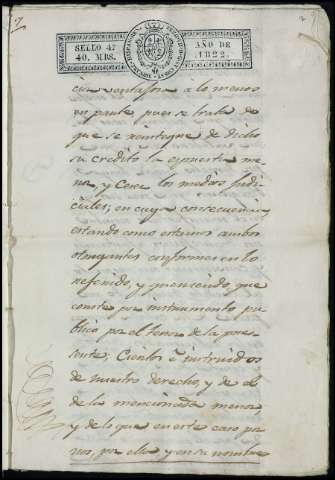 SELLO 4º
40. MRS.
AÑO DE
1822.
cia ventajosa a lo menos
en parte pues se trata de
que se reintegre de dicho
su credito la exponente me-
nor, y Cese los medios Judi-
ciales; en cuya consecuencia
estando como estamos ambos
otorgantes conformes en lo
referido, y queriendo, que
conste por instrumento pu-
blico por el tenor de la pre-
sente, Ciertos e instruidos
de nuestro derecho, y de el
de la mencionada menor
y de lo que en este caso pa-
mos, por ella y en su nombre